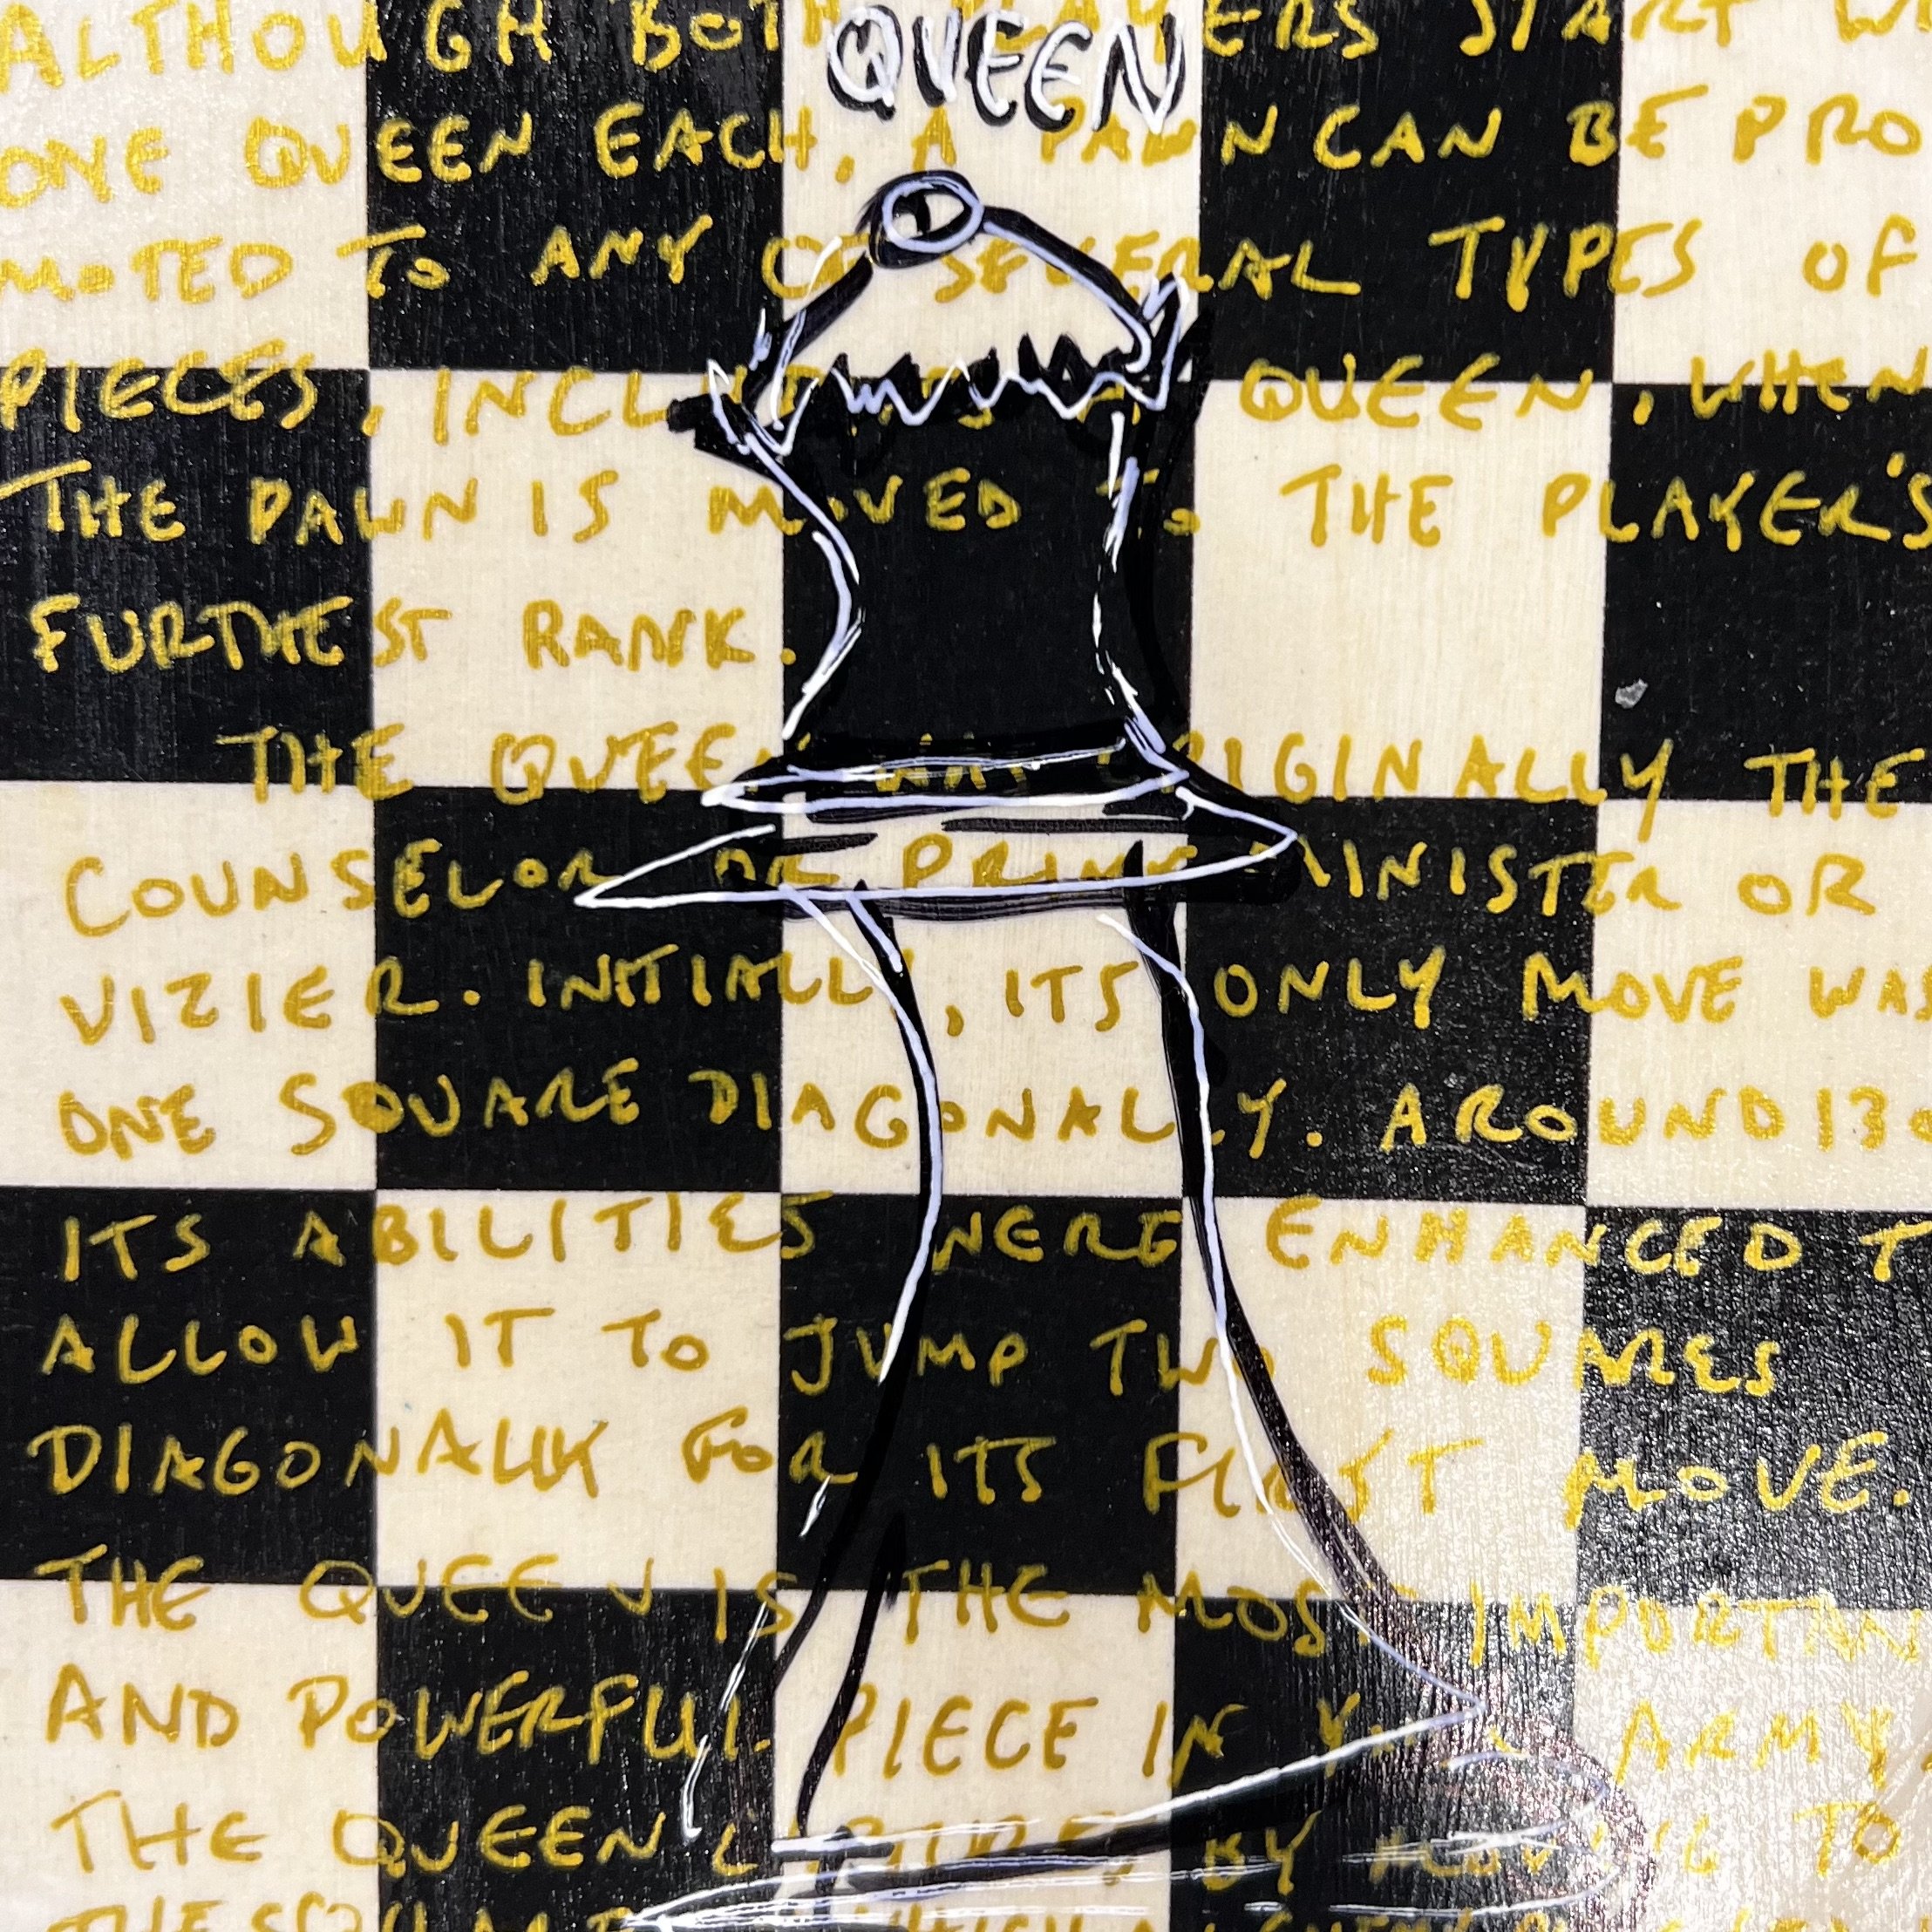 QUEEN
ALTHOUGH BOTH PLAYERS START WI
ONE QUEEN EACH, A PAWN CAN BE PRO
MOTED TO ANY OF SEVERAL TYPES OF
PIECES, QUEEN, WHEN
THE PAWN IS MOVED TO THE PLAYER'S
FURTHEST RANK.
THE QUEEN WAS ORIGINALLY THE
COUNSELOR OR PRIME MINISTER OR
VIZIER. INITIALLY, ITS ONLY MOVE WAS
ONE SQUARE DIAGONALLY. AROUND 130
ITS ABILITIES WERE ENHANCED T
ALLOW IT TO JUMP TWO SQUARES
DIAGONALLY FOR ITS FIRST MOVE.
THE QUEEN IS THE MOST IMPORTAN
AND POWERFUL PIECE IN YOUR ARMY
THE QUEEN BY MOVING TO
THE SQUARE WHICH